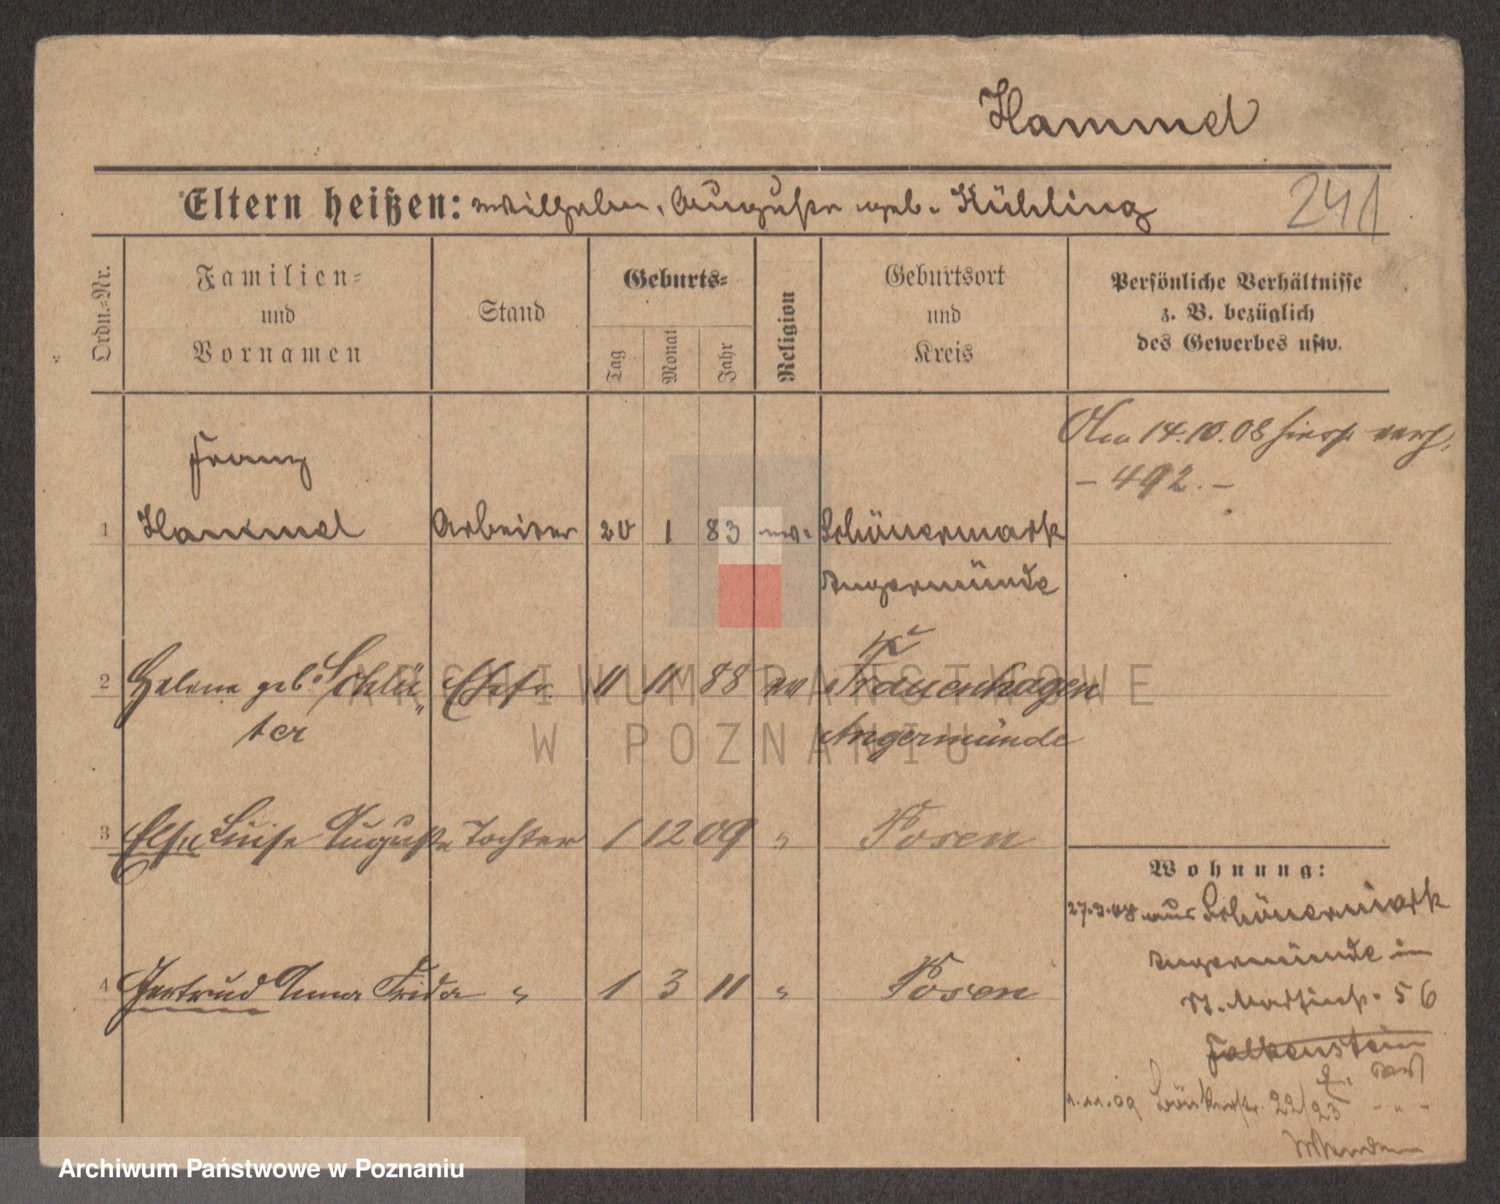 Hammel
Eltern heißen: Wilhelm, Auguste geb. Kühling
241
Ordn.-Nr.
Familien-
und
Vornamen
Stand
Geburts-
Tag
Monat
Jahr
Religion
Geburtsort
und
Kreis
Persönliche Verhältnisse
z. B. bezüglich
des Gewerbes usw.
Am 14.10.08 hiers. verh.
- 492. -
Franz
1 Hammel Arbeiter 20 1 83 ev. Schönermark
Angermünde
2 Helene geb. Schlü- Ehefr. 11 11 88 ev Frauenhagen
ter Angermünde
3 Else Luise Auguste Tochter 1 12 09 " Posen
4 Gertrud Anna Frida " 1 3 11 " Posen
Wohnung:
27.3.08 aus Schönermark
Angermünde in
St. Martinstr. 56
Falkenstein
1.11.09 Bäckerstr. 22/23 - " -
Wenden
ARCHIWUM PAŃSTWOWE
W POZNANIU
Archiwum Państwowe w Poznaniu